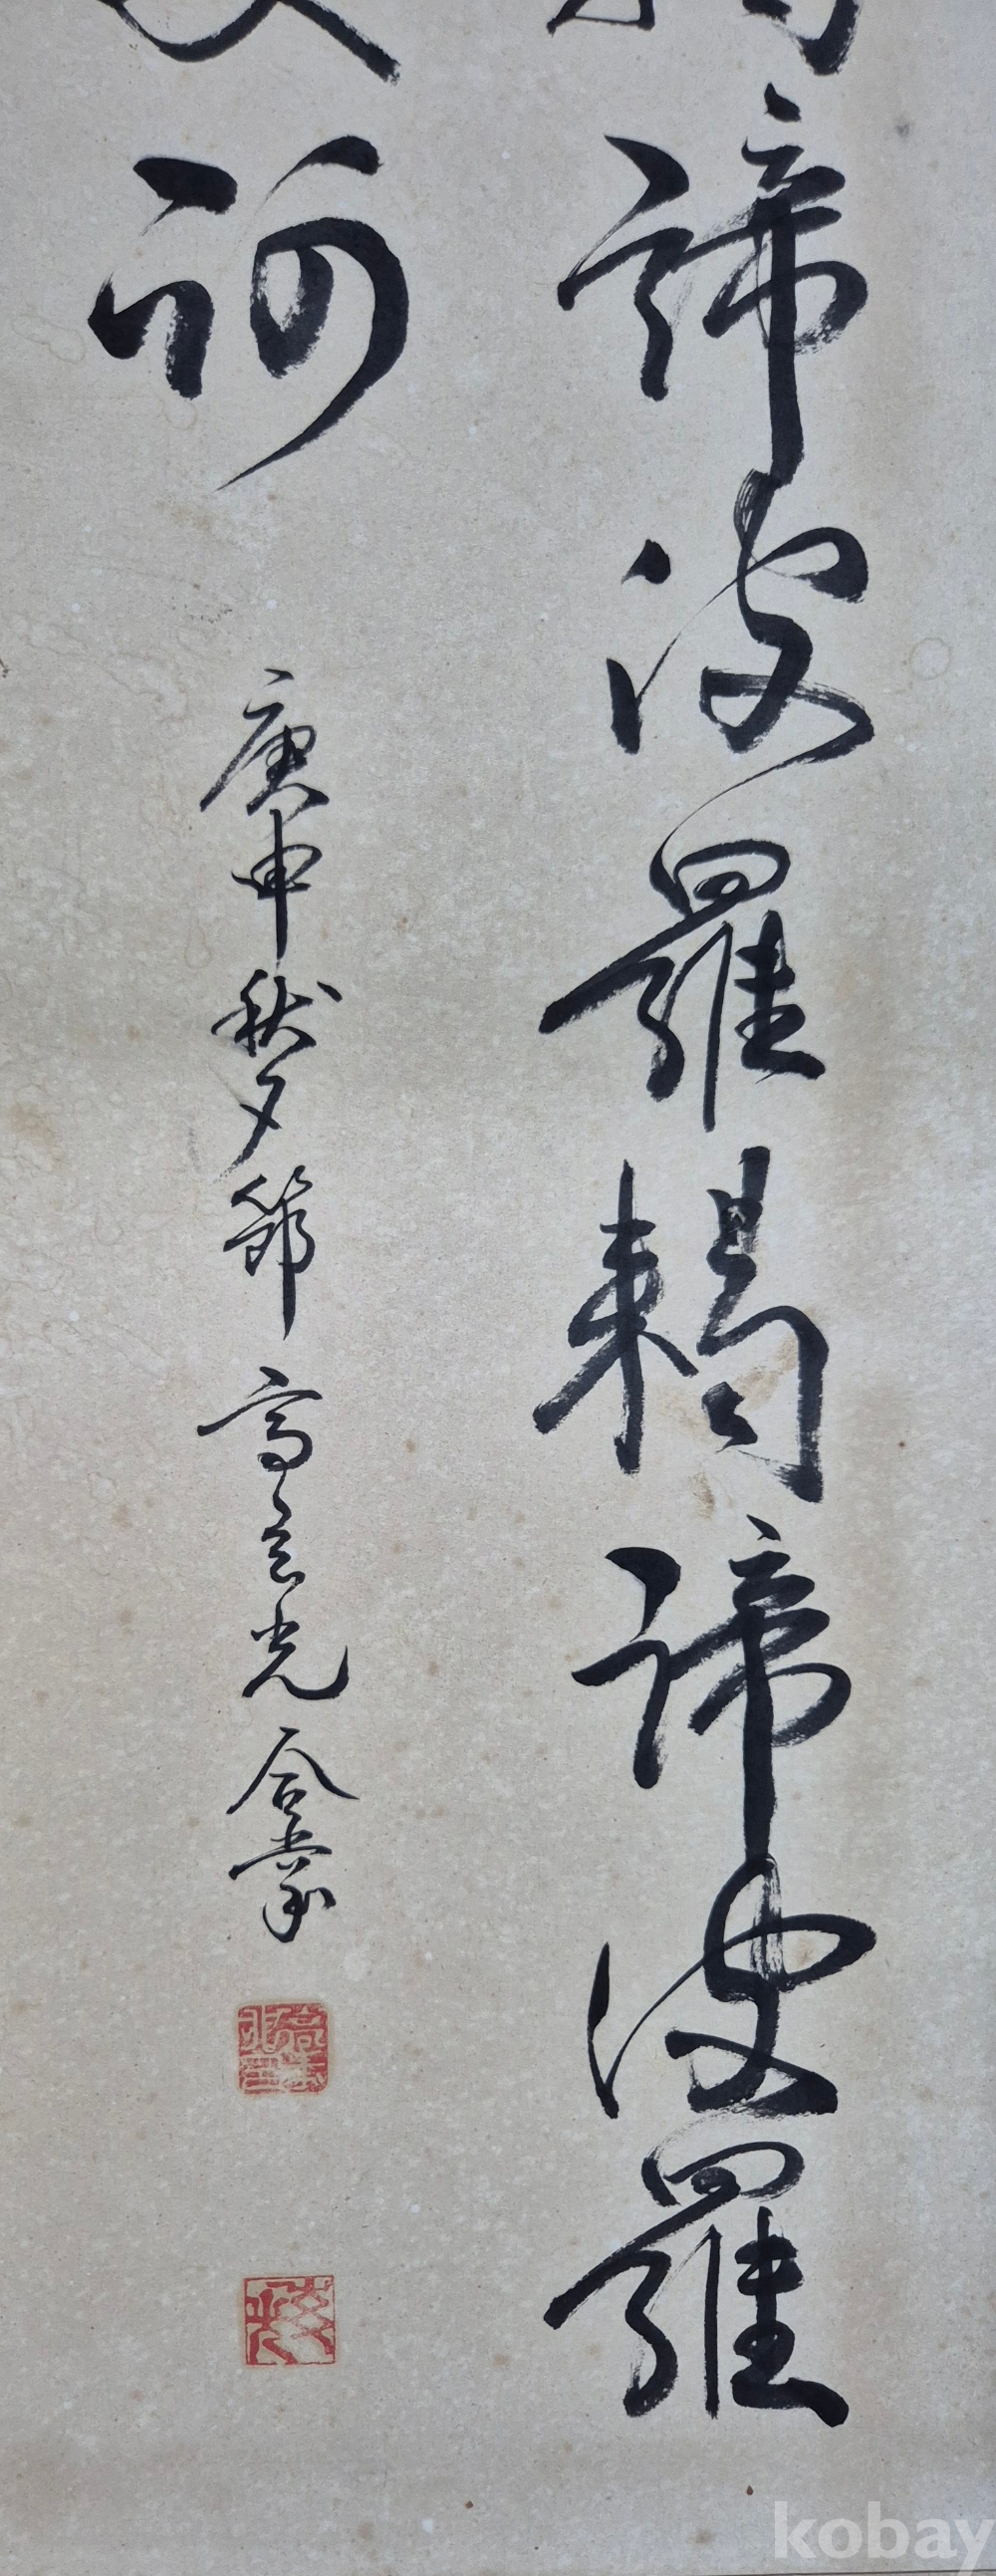 諦波羅羯諦波羅
訶
庚申秋夕節 高玄光 合掌
kobay